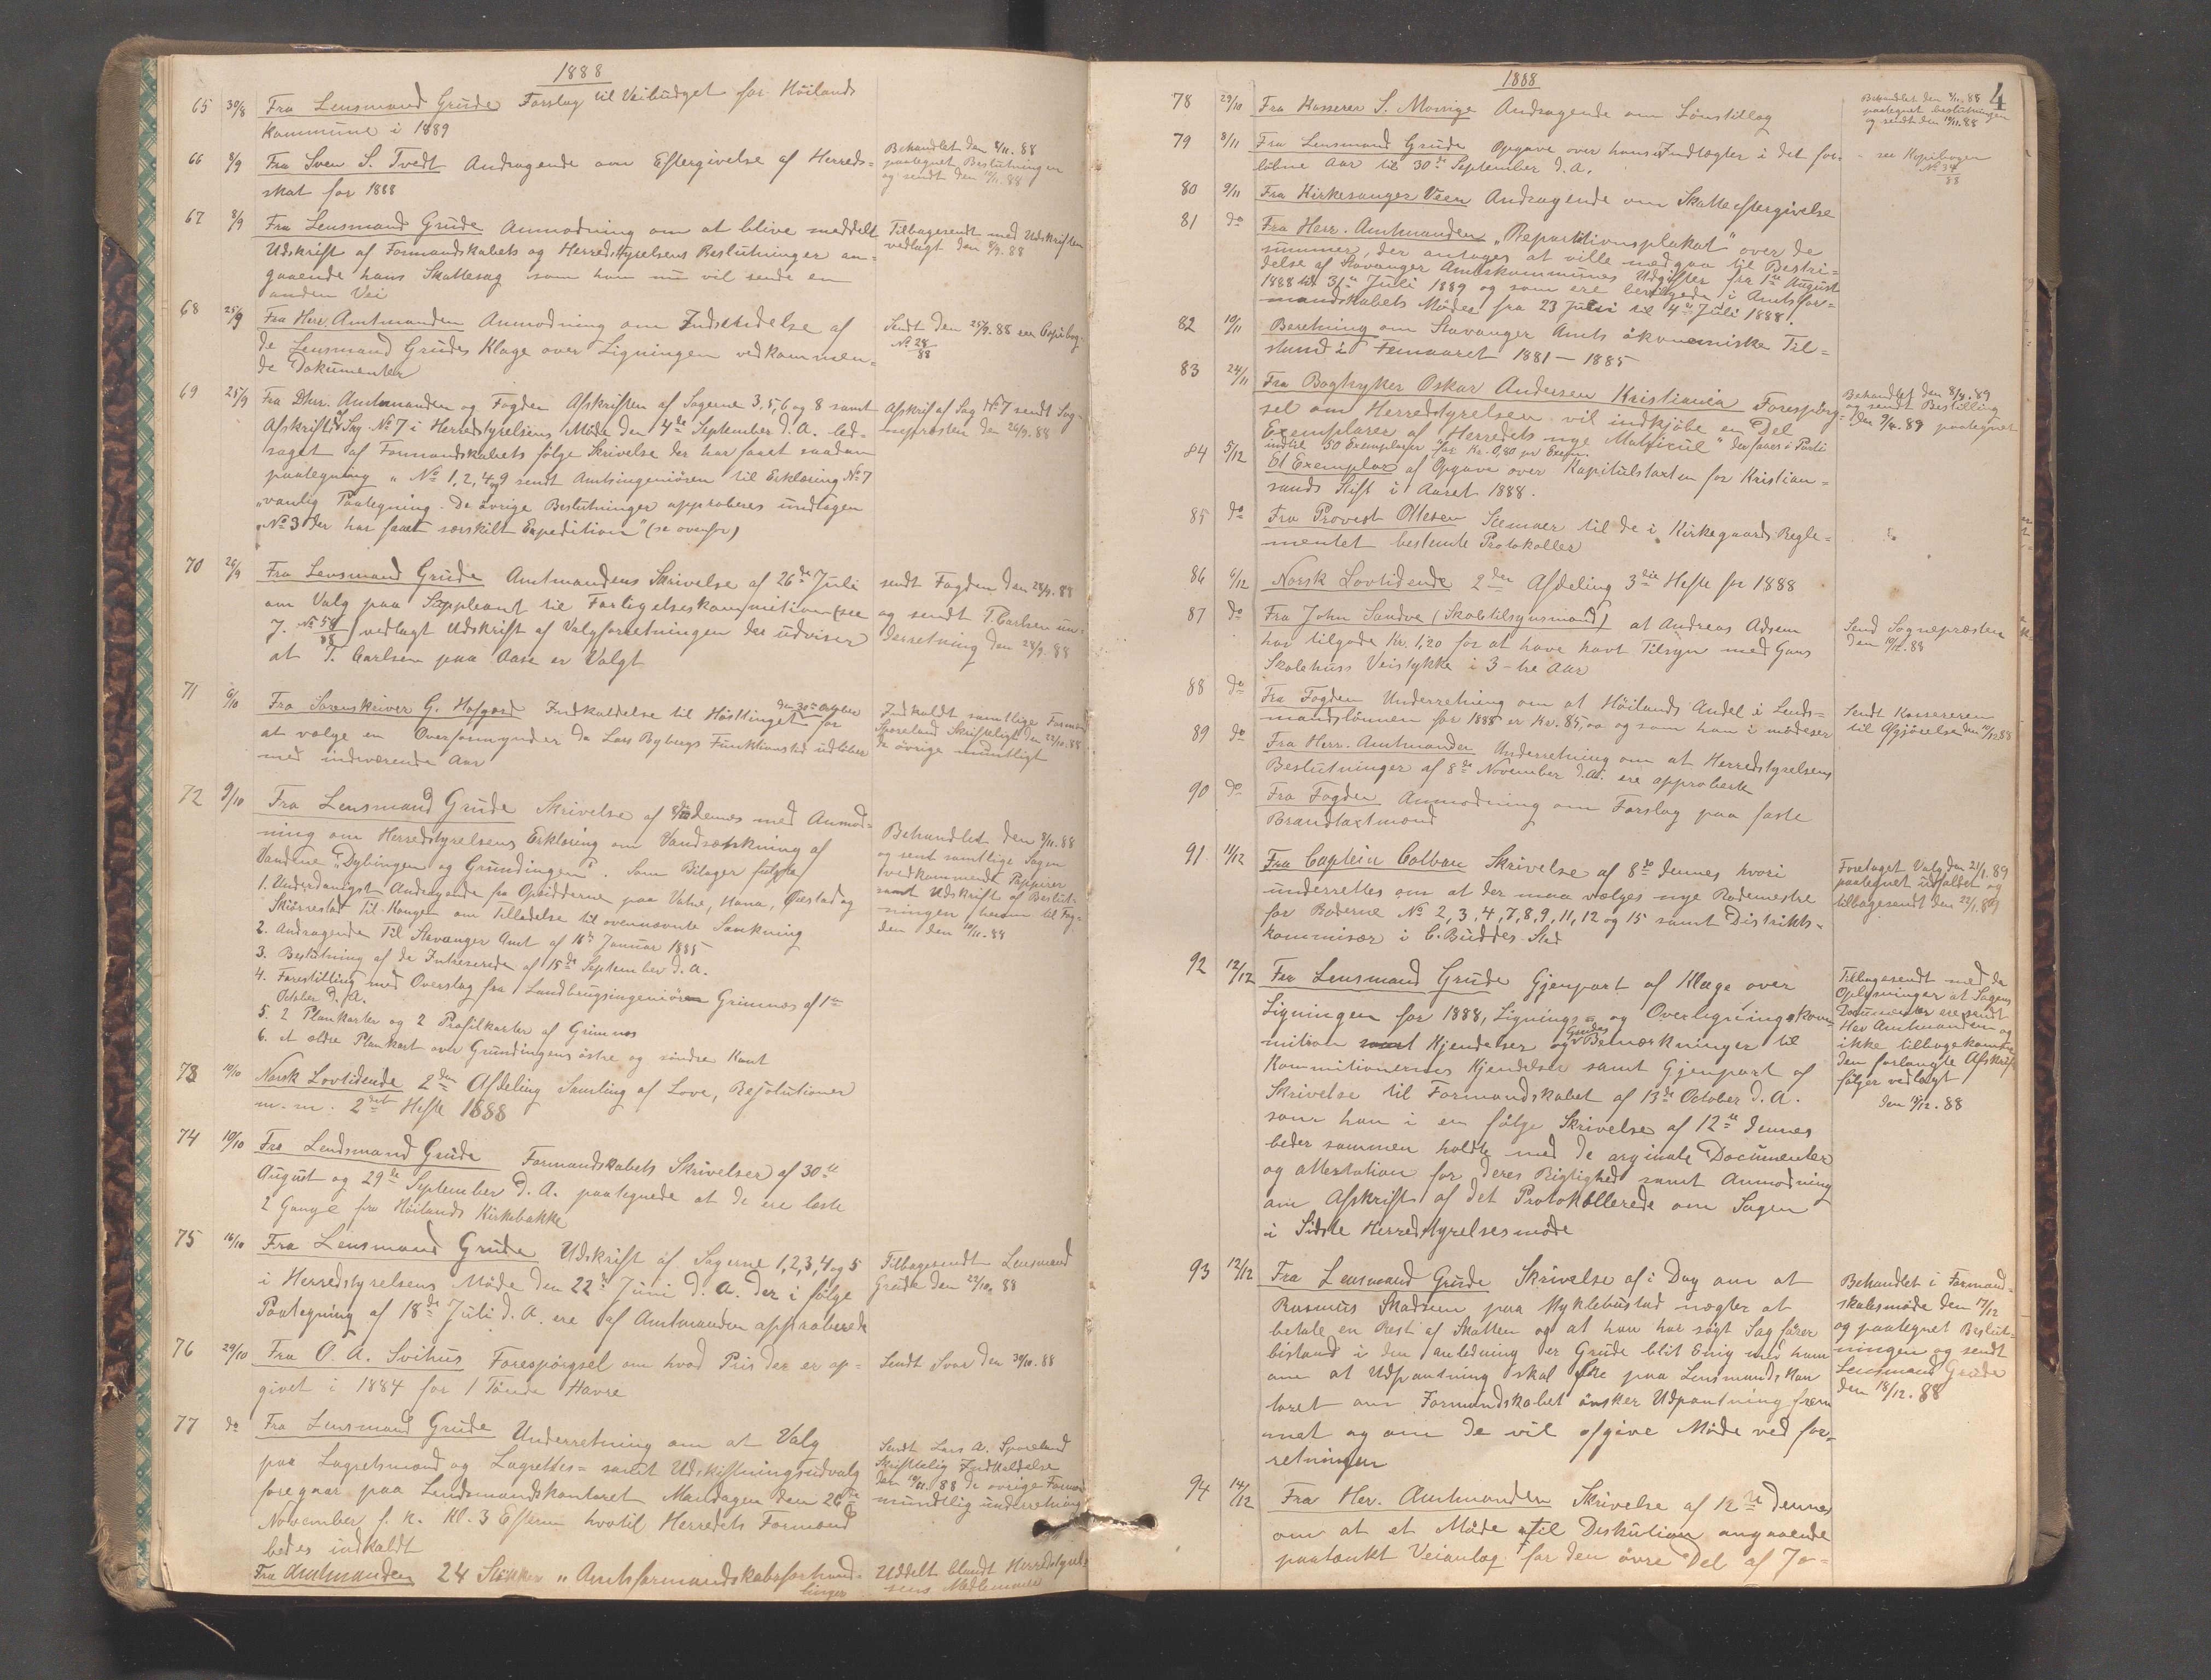 1888
65 30/8 Fra Lensmand Grude Forslag til Veibudget for Höilands
kommune i 1889
66 8/9 Fra Sven S. Tvedt Andragende om Eftergivelse af Herreds=
skat for 1888
Behandlet den 8/11. 88
paategnet Beslutningen
og sendt den 10/11. 88
67 8/9 Fra Lensmand Grude Anmodning om at blive meddelt
Udskrift af Formandskabets og Herredstyrelsens Beslutninger an=
gaaende hans Skattesag som han nu vil sende en
anden Vei
Tilbagesendt med Udskriften
vedlagt den 8/9. 88
68 25/9 Fra Herr Amtmanden Anmodning om Indsendelse af
de Lensmand Grudes Klage over Ligningen vedkommen=
de Dokumenter
Sendt den 25/9. 88 see Copibog
No 28/88
69 25/9 Fra Dhrr. Amtmanden og Fogden Afskriften af Sagerne 3, 5, 6 og 8 samt
Afskrift af Sag No 7 i Herredstyrelsens Möde den 4de September d. A. led=
saget af Formandskabets fölge Skrivelse der har faaet saadan
paategning „No 1, 2, 4 og 9 sendt Amtsingeniören til Erklæring No 7
„vanlig Paategning. De övrige Beslutninger approberes undtagen
„No 3 der har faaet særskilt Expedition" (se ovenfor)
Afskrif af Sag No 7 sendt Sog=
nepræsten den 26/9. 88
70 26/9 Fra Lensmand Grude Amtmandens Skrivelse af 26de Juli
om Valg paa Suppleant til Forligelseskommitionen (see
J. No 58/88) vedlagt Udskrift af Valgforretningen der udviser
at T. Carlsen paa Aase er Valgt
sendt Fogden den 28/9. 88
og sendt T. Carlsen un=
derretning den 28/9. 88
71 6/10 Fra Sorenskriver G. Hofgard Indkaldelse til Hösttinget den 30te Oktober for
at vælge en Overformynder da Lars Bybergs Funktionstid udlöber
med indeværende Aar
Indkaldt samtlige Formænd
Skoreland Skriftligt den 22/10. 88
de övrige mundtligt
72 9/10 Fra Lensmand Grude Skrivelse af 8de dennes med Anmod=
ning om Herredstyrelsens Erklæring om Vandsænkning af
Vandene „Dybingen og Grundingen". Som Bilager fulgte
1. Underdanigst Andragende fra Opsidderne paa Vatne, Hana, Östad og
Skiörrestad til Kongen om Tilladelse til ovennævnte Sænkning
2. Andragende til Stavanger Amt af 18de Januar 1885
3. Beslutning af de Intreserede af 15de September d. A.
4. Forestilling med Overslag fra Landbrugsingeniören Grimnæs af 1ste
October d. A.
5. 2 Plankarter og 2 Profilkarter af Grimnæs
6. et ældre Plankart over Grundingens östre og söndre Kant
Behandlet den 8/11. 88
og sent samtlige Sagen
vedkommende Pappirer
samt Udskrift af Beslut=
ningen herom til Fog=
den den 10/11. 88
73 10/10 Norsk Lovtidende 2den Afdeling Samling af Love, Resolutioner
m. m. 2det Hefte 1888
74 10/10 Fra Lendsmand Grude Formandskabets Skrivelser af 30te
August og 29de September d. A. paategnede at de ere læste
2 Gange fra Höilands Kirkebakke
75 16/10 Fra Lensmand Grude Udskrift af Sagerne 1, 2, 3, 4 og 5
i Herredstyrelsens Möde den 22de Juni d. A. der i fölge
Paategning af 18de Juli d. A. ere af Amtmanden approberede
Tilbagesendt Lensmand
Grude den 22/10. 88
76 29/10 Fra O. A. Svihus Forespörgsel om hvad Pris der er op=
givet i 1884 for 1 Tönde Havre
Sendt Svar den 30/10. 88
77 do Fra Lensmand Grude Underretning om at Valg
paa Lagretsmænd og Lagrettes= samt Udskiftningsudvalg
foregaar paa Lendsmandskontoret Mandagen den 26de
November f. k. Kl. 3 Efterm hvortil Herredets Formænd
bedes indkaldt
Sendt Lars A. Sporeland
Skriftlig Indkaldelse
den 10/11. 88 de övrige Formænd
mundtlig underretning
Fra Amtmanden 24 Stykker „Amtsformandskabsforhand=
linger
Uddelt blandt Herredstyrel=
sens Medlemmer
1888
4
78 29/10 Fra Kasserer S. Mossige Andragende om Lönstillæg
Behandlet den 8/11. 88
paategnet beslutningen
og sendt den 10/11. 88
79 8/11 Fra Lensmand Grude Opgave over hans Indtægter i det for=
löbne Aar til 30te September d. A.
see Kopibogen
No 34/88
80 9/11 Fra Kirkesanger Veen Andragende om Skatteeftergivelse
81 do Fra Herr. Amtmanden „Repartitionsplakat" over de
summer, der antages at ville medgaa til Bestri=
delse af Stavanger Amtskommunes Udgifter fra 1ste August
1888 til 31te Juli 1889 og som ere bevilgede i Amtsfor=
mandskabets Möder fra 23 Juni til 4de Juli 1888.
82 10/11 Beretning om Stavanger Amts ökonomiske Til=
stand i Femaaret 1881 — 1885
83 24/11 Fra Bogtrykker Oskar Andersen Kristiania Forespörg=
sel om Herredstyrelsen vil indkjöbe en Del
Exemplarer af „Herredets nye Matricul" der faaes i Parti
indtil 50 Exemplarer for Kr. 0,80 pr Exem.
Behandlet den 8/4. 89
og sendt Bestilling
den 9/4. 89 paategnet
84 5/12 Et Exemplar af Opgave over Kapitelstaxten for Kristian=
sands Stift i Aaret 1888.
85 do Fra Provest Ottesen Scemaer til de i Kirkegaards Regle=
mentet bestemte Protokoller
86 6/12 Norsk Lovtidende 2den Afdeling 3die Hefte for 1888
87 do Fra John Sandve (Skoletilsynsmand) at Andreas Adsem
har tilgode Kr. 1,20 for at have havt Tilsyn med Gans
Skolehuss Veistykke i 3 - tre Aar
Send Sognepræsten
den 10/12. 88
88 do Fra Fogden Underretning om at Höilands Andel i Lends=
mandslönnen for 1888 er Kr. 85,00 og som han i mödeser
Sendt Kassereren
til Afgjörelse den 10/12 88
89 do Fra Herr. Amtmanden Underretning om at Herredstyrelsens
Beslutninger af 8de November d. A. ere approberte
90 do Fra Fogden Anmodning om Forslag paa faste
Brandtaxtmænd
91 11/12 Fra Captein Colban Skrivelse af 8de dennes hvori
underrettes om at der maa vælges nye Rodemestre
for Roderne No 2, 3, 4, 7, 8, 9, 11, 12 og 15 samt Distrikts=
kommisær i C. Buddes Sted
Foretaget Valg den 21/1. 89
paategnet udfaldet og
tilbagesendt den 22/1. 89
92 12/12 Fra Lensmand Grude Gjenpart af Klage over
Ligningen for 1888, Lignings= og Overligningskom=
mition samt Kjendelser og Grudes Bemærkninger til
Kommitionernes Kjendelse samt Gjenpart af
Skrivelse til Formandskabet af 13de October d. A.
som han i en fölge Skrivelse af 12te dennes
beder sammen holdt med de orginale Documenter
og attestation for deres Rigtighed samt Anmodning
om Afskrift af det Protokollerede om Sagen
i Sidste Herredstyrelsesmöde
Tilbagesendt med de
Oplysninger at Sagens
Documenter ere sendt
Her Amtmanden og
ikke tilbagekomne
den forlangte Afskrift
fölger vedlagt
den 19/12. 88
93 12/12 Fra Lensmand Grude Skrivelse af i Dag om at
Rasmus Skadsem paa Myklebustad nægter at
betale en Rest af Skatten og at han har sögt Sagförer
bistand i den anledning er Grude blit Enig med ham
om at Udpantning skal ske paa Lensmands Kon
toret om Formandskabet önsker Udpantning frem
met og om de vil afgive Möde ved for=
retningen
Behandlet i Formand=
skabsmöde den 17/12
og paategnet Beslut=
ningen og sendt
Lensmand Grude
den 18/12. 88
94 14/12 Fra Her. Amtmanden Skrivelse af 12te dennes
om at et Möde til Diskution angaaende
paatænkt Veianlæg for den övre Del af Jæ=